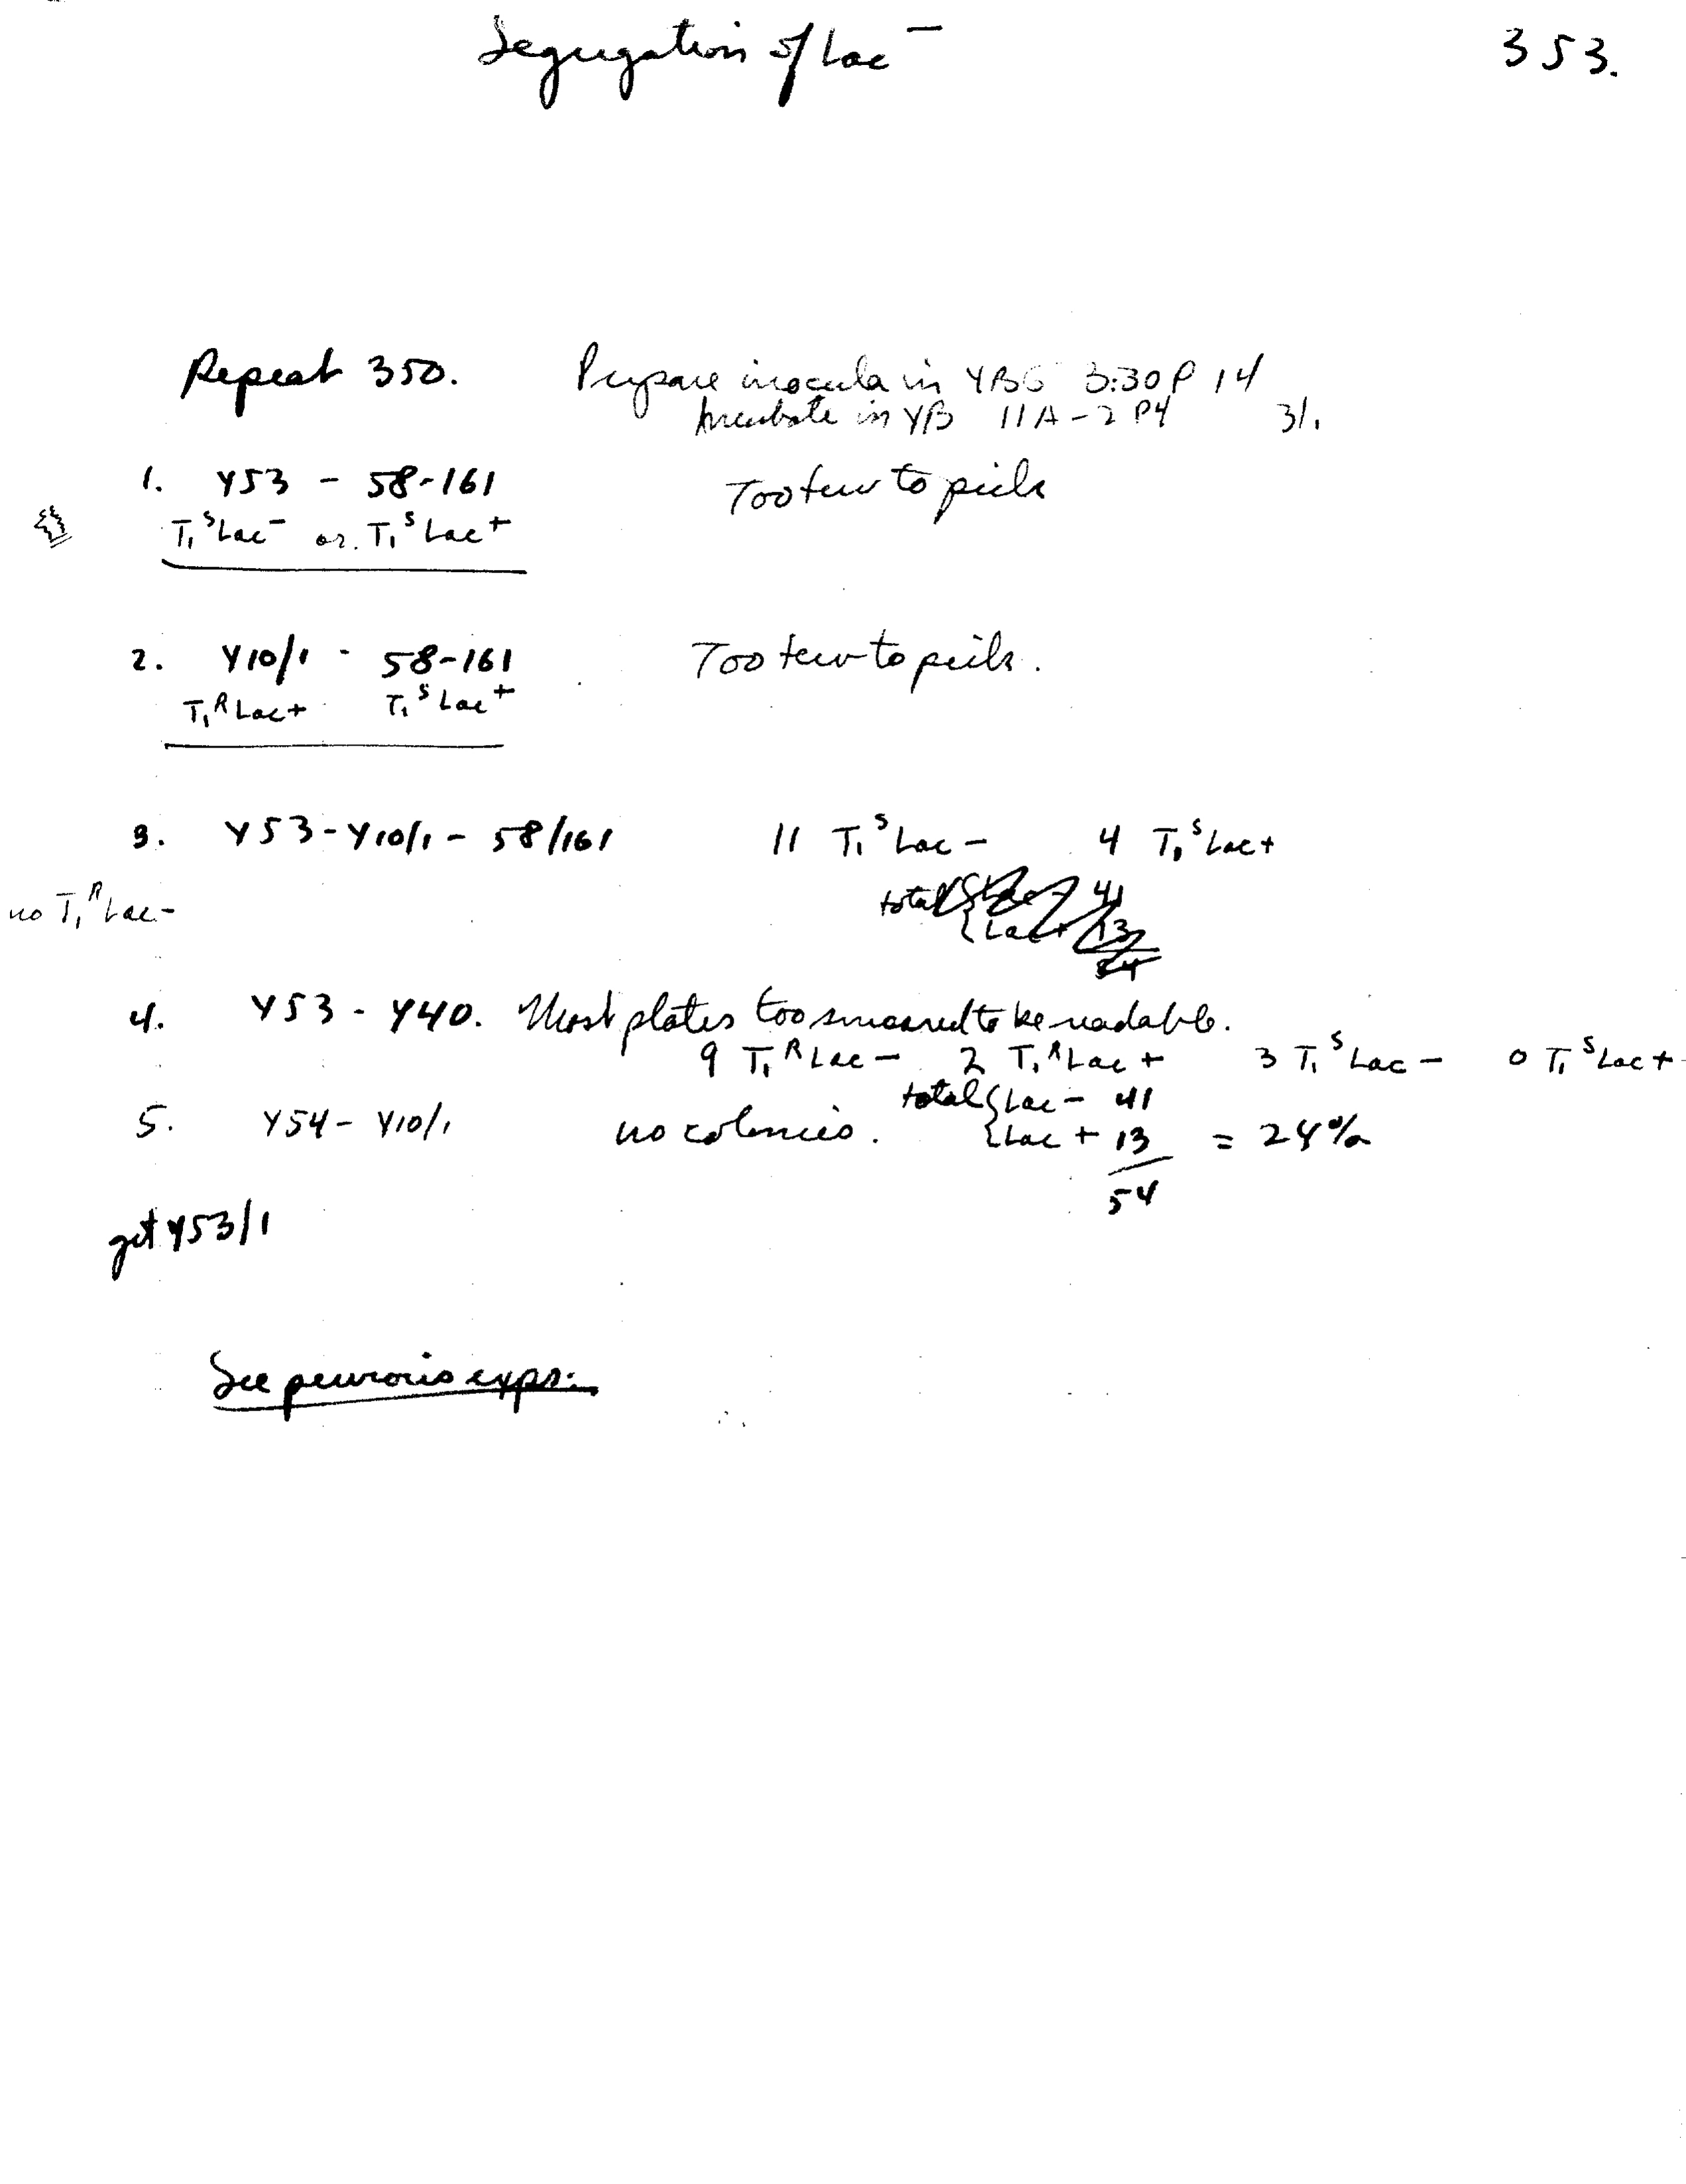 Segregation of Lac⁻ 353.
Repeat 350. Prepare inocula in YBG 3:30P 14
Incubate in YB 11A-2P4 3/1
1. Y53 - 58-161 Too few to pick
T₁ˢLac⁻ or T₁ˢLac⁺
2. Y10/1 - 58-161 Too few to pick.
T₁ᴿLac+ T₁ˢLac⁺
3. Y53-Y10/1 - 58/161 11 T₁ˢLac- 4 T₁ˢLac+
no T₁ᴿLac-
total { Lac- 41
{ Lac+ 13
54
4. Y53 - Y40. Most plates too smeared to be readable.
9 T₁ᴿLac- 2 T₁ᴿLac+ 3 T₁ˢLac- 0 T₁ˢLac+
total { Lac- 41
5. Y54 - Y10/1 no colonies. { Lac + 13 = 24%
54
get Y53/1
See previous exps.